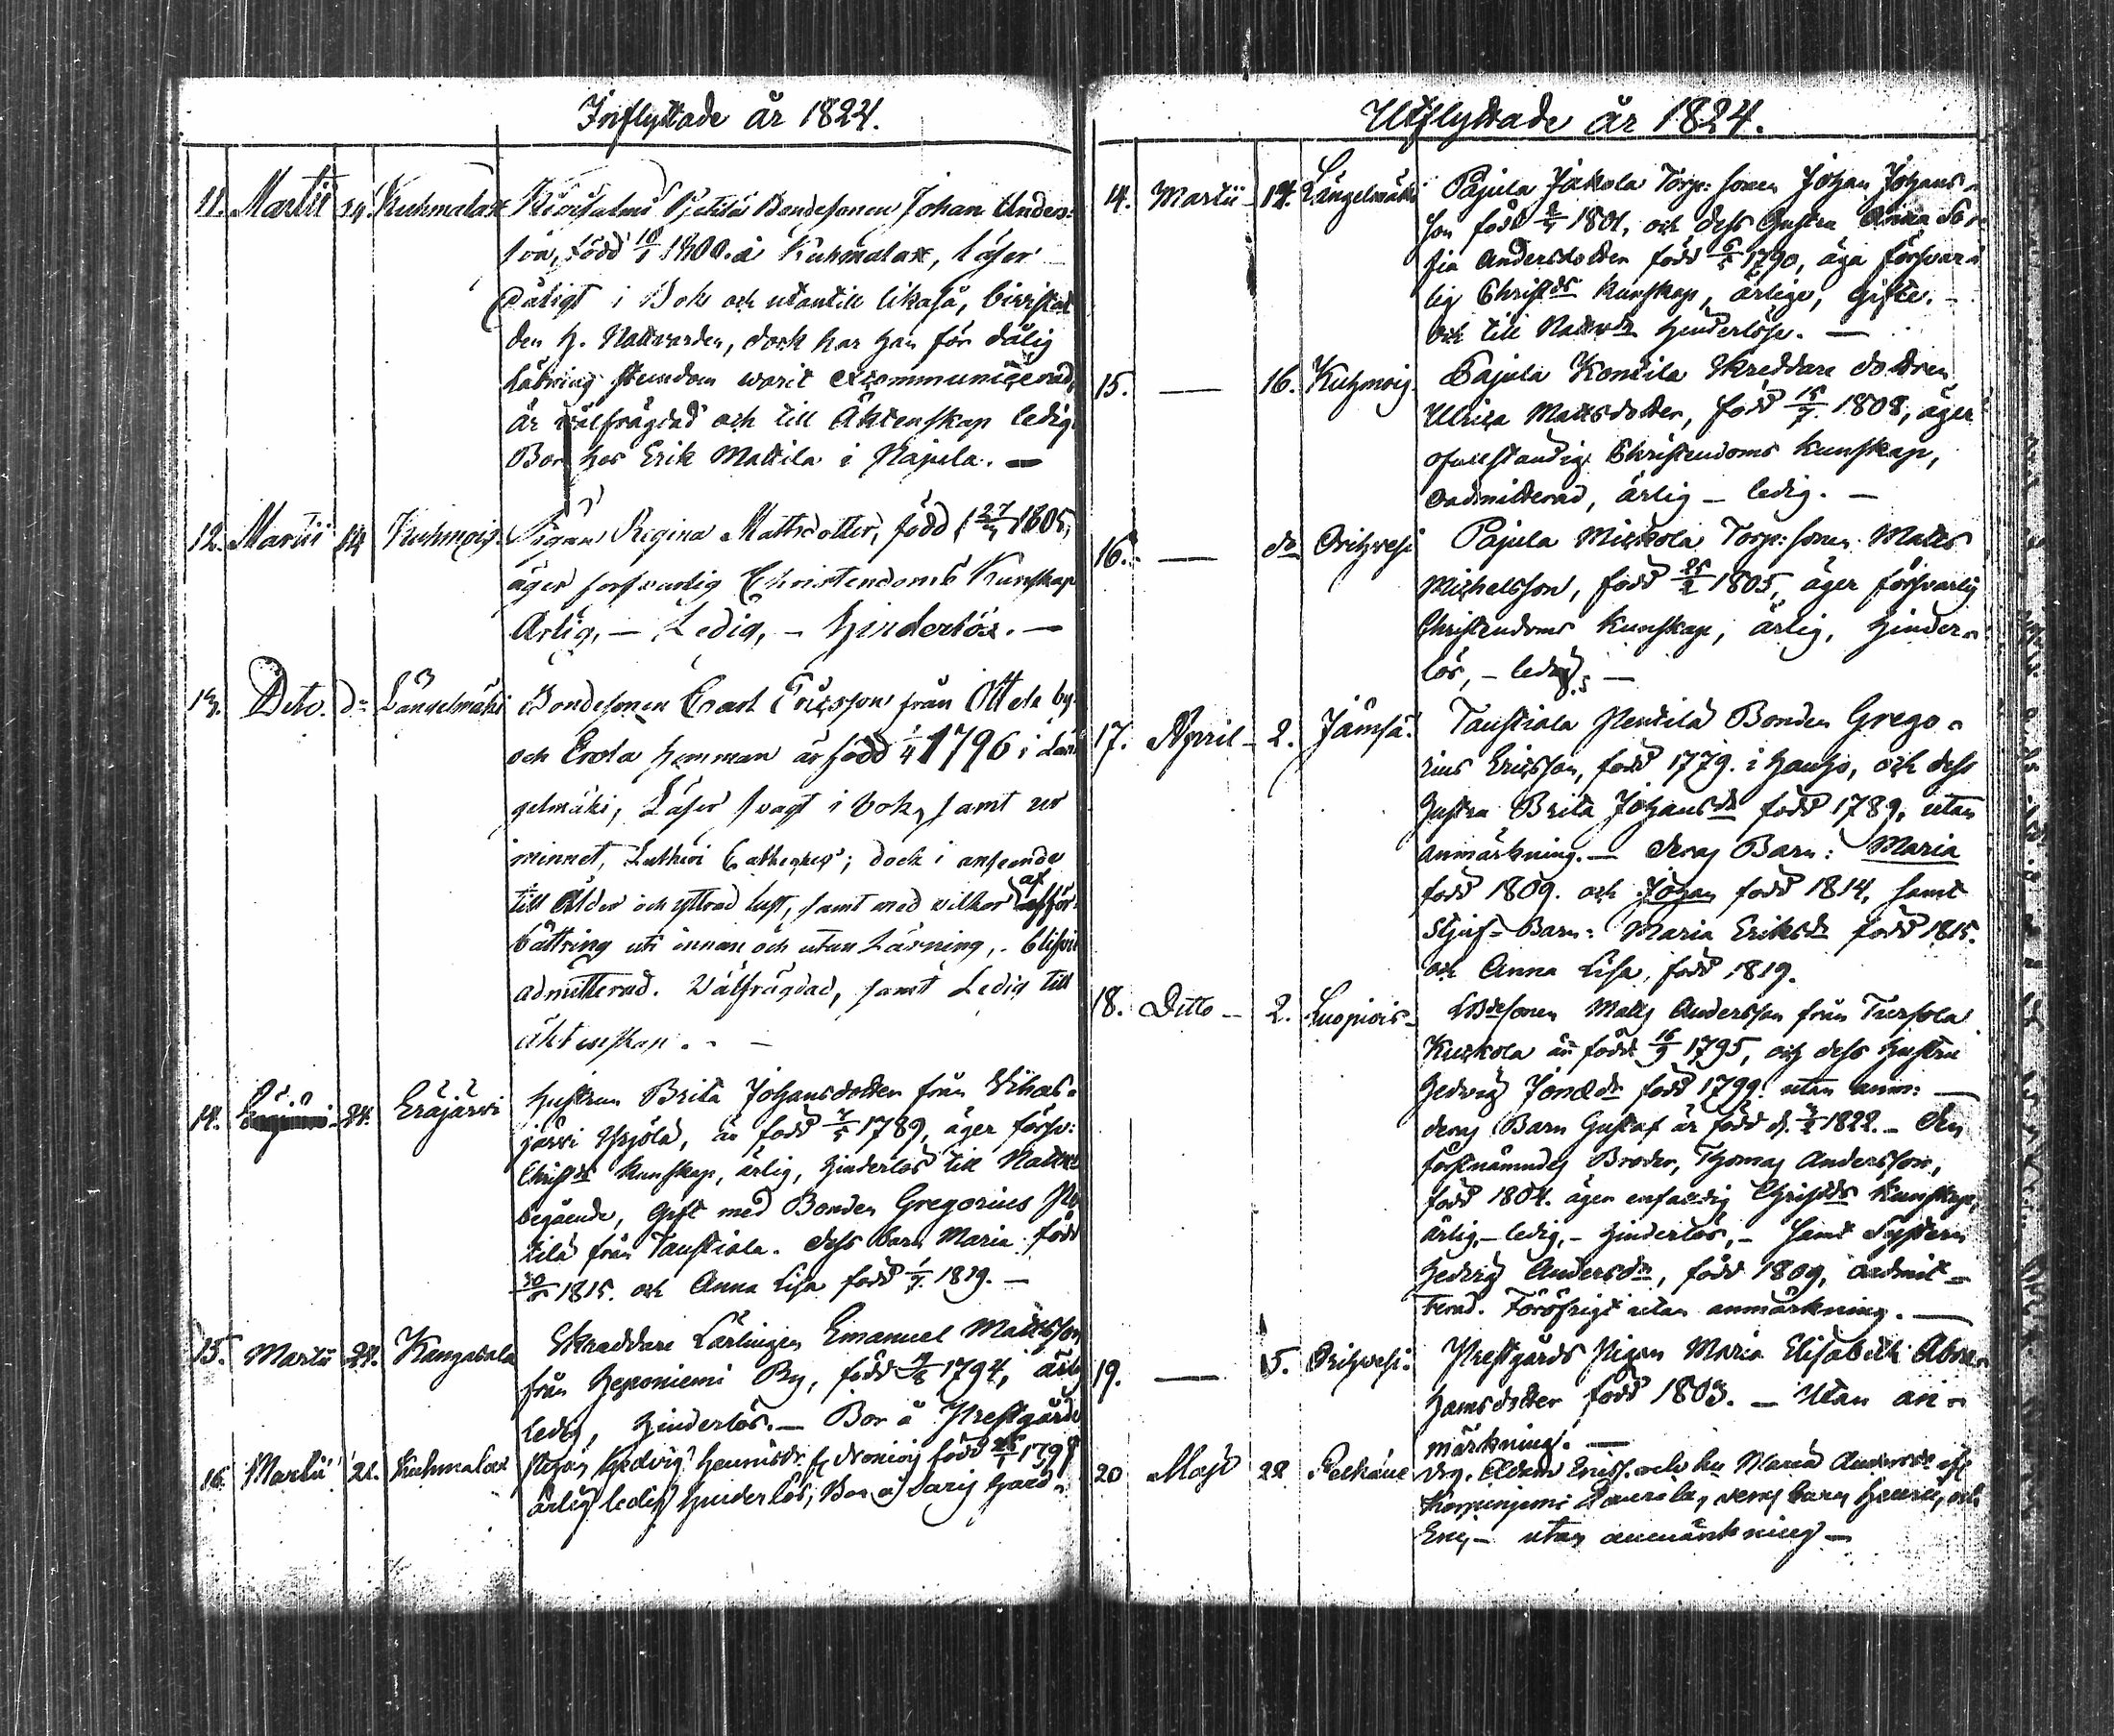 Inflyttade år 1824.
11. Martii 14. Kuhmalax Bondesonen Johan Anders-
son, född 10/1 1800. i Kuhmalax, läser
dåligt i Bok och utantill likaså, bivistat
den H. Nattvarden, dock har han för dålig
läsning stundom warit excommunicerad,
är wälfrägdad och till Äktenskap ledig.
Bor hos Erik Mattila i Pajula. —
12. Martii 14 Kuhmois. Pigan Regina Mattsdotter, född 27/ 1805,
äger försvarlig Christendoms Kunskap
Ärlig, — Ledig, — hinderlös. —
13. Dito. do Längelmäki Bondesonen Ericsson från Attila by
och Erola hemman är född 1/4 1796 i Län-
gelmäki, Läser svagt i bok, samt ur
minnet, Lutheri Catheches; dock i anseende
till Ålder och yttrad lust, samt med vilkor af för-
bättring uti innan och utan Läsning, blifvit
admitterad. Wälfrägdad, samt Ledig till
äktenskap. —
14. 24. Eräjärvi Hustrun Brita Johansdotter från Vihas-
järvi Yrjölä, är född /5 1789, äger försv:
Christds Kunskap, ärlig, hinderlös till Nattvds
begående, Gift med Bonden Gregorius Pen
tilä från Taustiala. dess barn Maria född
30/ 1815. och Anna Lisa född 1/7 1819. —
15. Martii 24. Kangasala Skräddare Lärlingen Emanuel Mattsson
från Heponiemi By, född 1794, ärlig
ledig, hinderlös. — Bor å Prestgården
16. Martii 21. Kuhmalax Pigan Hedvig född 25/ 179
ärlig ledig hinderlös, Bor å gård.
Utflyttade år 1824.
14. Martii 14. Längelmäki Pajula Jukola Torp: sonen Johan Johans-
son född 1801, och dess hustru Anna So-
fia Andersdotter född 6/5 1790, äga försvar-
lig Christds Kunskap, ärlige, gifte. —
och till Nattvdn hinderlöse. —
15. — 16. Kuhmois. Pajula Kontila Skreddare dottren
Ulrica Mattsdotter, född 15/7 1808, äger
ofullständig Christendoms Kunskap,
oadmitterad, ärlig — ledig. —
16. — do Orihvesi Pajula Mickola Torp: sonen Matts
Michelsson, född 25/2 1805, äger försvarlig
Christendoms Kunskap, ärlig, hinder-
lös, — ledig. —
17. April — 2. Jämsä. Taustiala Pentilä Bonden Grego-
rius Ericsson, född 1779. i Hauho, och dess
hustru Brita Johansdr född 1789, utan
anmärkning. — deras Barn: Maria
född 1809. och Johan född 1814, samt
Stjuf-Barn: Maria Eriksdr född 1815.
och Anna Lisa, född 1819.
18. Ditto — 2. Luopiois — Bdesonen Matts Andersson från Tursola
Kuckola är född 16/9 1795, och dess hustru
Hedvig född 1799. utan anm: —
deras Barn Gustaf är född d. 1822. — den
förstnämndes Broder, Thomas Andersson,
född 1804. äger enfaldig Christds Kunskap,
ärlig, — ledig, — hinderlös, — samt Systern
Hedvig Andersdr, född 1809, admit-
terad. Föröfrigt utan anmärkning. —
19. — 5. Orihvesi. Prestgårds Pigan Maria Elisabeth Abra-
hamsdotter född 1803. — Utan an-
märkning. —
20 Maji 28 Pelkäne drg. Adam Ericss. och hu Maria Andersdr
deras barn och
Eric — utan anmärkning —